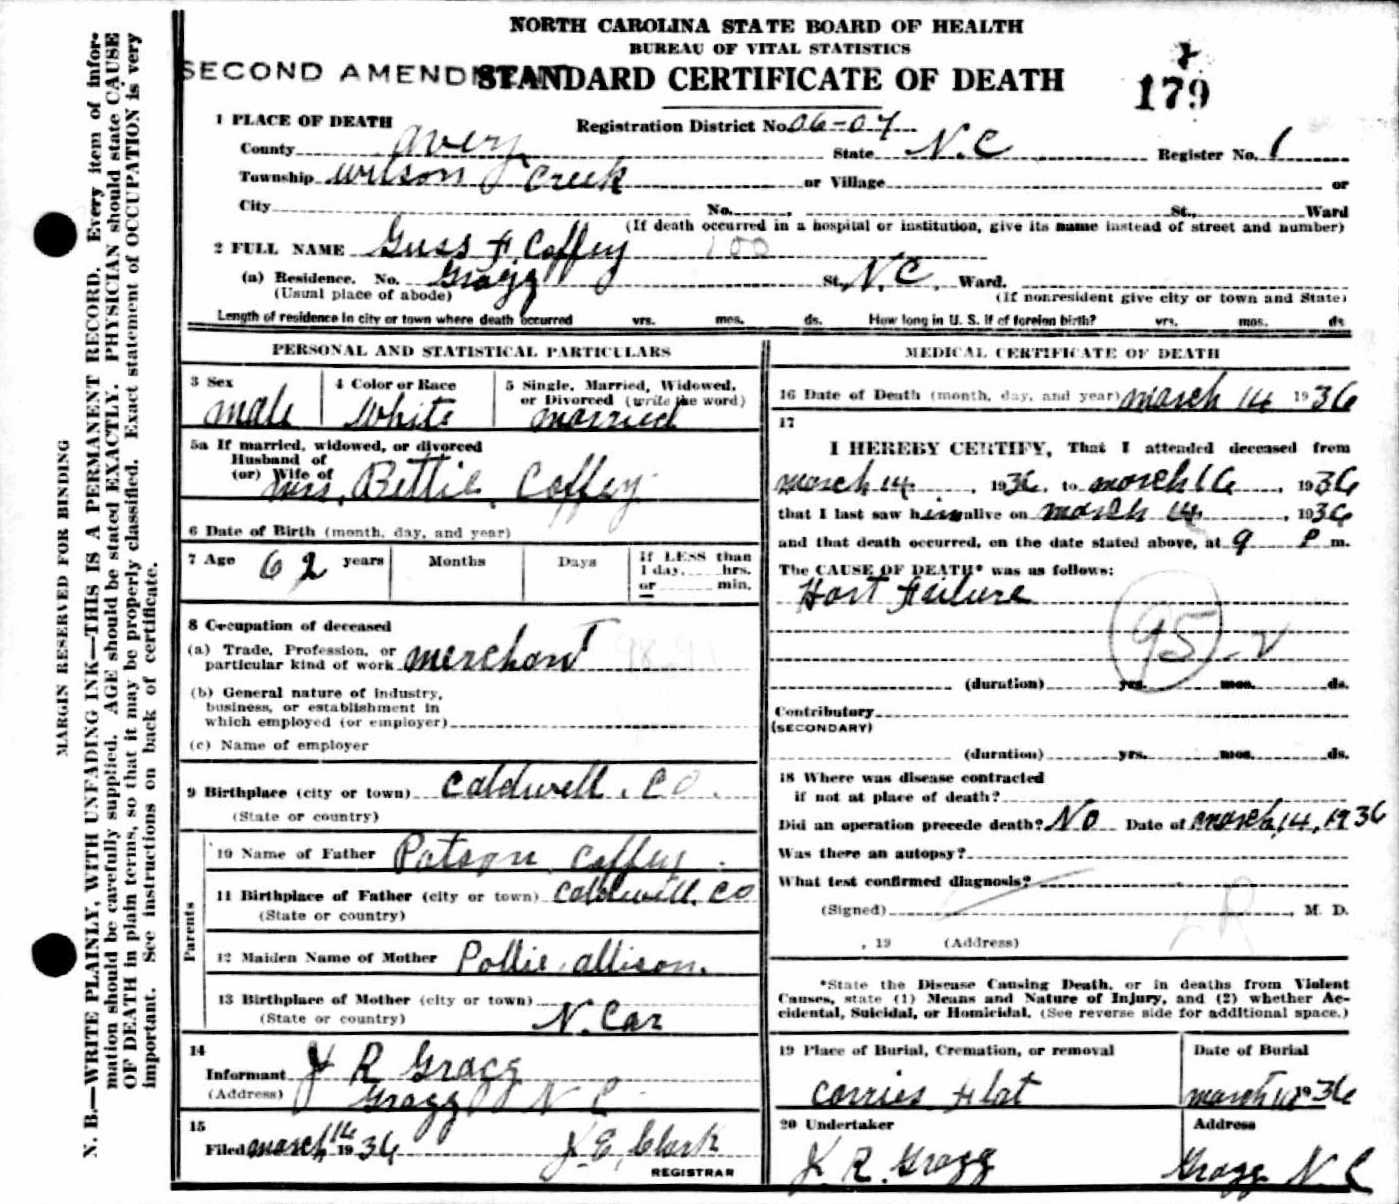 NORTH CAROLINA STATE BOARD OF HEALTH
BUREAU OF VITAL STATISTICS
SECOND AMENDMENT
STANDARD CERTIFICATE OF DEATH
179
1 PLACE OF DEATH Registration District No. 06-07
County Avery State N.C Register No. 1
Township Wilson Creek or Village or
City No. , St., Ward
(If death occurred in a hospital or institution, give its name instead of street and number)
2 FULL NAME Guss F. Coffey 100
(a) Residence. No. Gragg St. N.C. Ward.
(Usual place of abode) (If nonresident give city or town and State)
Length of residence in city or town where death occurred yrs. mos. ds. How long in U. S. if of foreign birth? yrs. mos. ds
PERSONAL AND STATISTICAL PARTICULARS
3 Sex 4 Color or Race 5 Single, Married, Widowed, or Divorced (write the word)
male White married
5a If married, widowed, or divorced
Husband of
(or) Wife of Mrs. Bettie. Coffey
6 Date of Birth (month, day, and year)
7 Age 62 years Months Days If LESS than 1 day, hrs. or min.
8 Occupation of deceased
(a) Trade, Profession, or
particular kind of work merchant
(b) General nature of industry,
business, or establishment in
which employed (or employer)
(c) Name of employer
9 Birthplace (city or town) Caldwell. CO.
(State or country)
Parents
10 Name of Father Patson Coffey
11 Birthplace of Father (city or town) Caldwell. CO
(State or country)
12 Maiden Name of Mother Pollie allison.
13 Birthplace of Mother (city or town)
(State or country) N. Car
14
Informant J R Gragg
(Address) Gragg N C
15
Filed march 14 1936 J. E. Clark
REGISTRAR
MEDICAL CERTIFICATE OF DEATH
16 Date of Death (month, day, and year) march 14 1936
17
I HEREBY CERTIFY, That I attended deceased from
march 14 , 1936, to march 16 , 1936
that I last saw him alive on march 14 , 1936
and that death occurred, on the date stated above, at 9 P m.
The CAUSE OF DEATH* was as follows:
Hart Failure
95-V
(duration) yrs. mos. ds.
Contributory
(SECONDARY)
(duration) yrs. mos. ds.
18 Where was disease contracted
if not at place of death?
Did an operation precede death? No Date of march, 14, 1936
Was there an autopsy?
What test confirmed diagnosis?
(Signed) , M. D.
, 19 (Address)
*State the Disease Causing Death, or in deaths from Violent
Causes, state (1) Means and Nature of Injury, and (2) whether Ac-
cidental, Suicidal, or Homicidal. (See reverse side for additional space.)
19 Place of Burial, Cremation, or removal Date of Burial
Carries Flat march 1936
20 Undertaker Address
J. R. Gragg Gragg N. C
MARGIN RESERVED FOR BINDING
N. B.—WRITE PLAINLY, WITH UNFADING INK—THIS IS A PERMANENT RECORD. Every item of infor-
mation should be carefully supplied. AGE should be stated EXACTLY. PHYSICIAN should state CAUSE
OF DEATH in plain terms, so that it may be properly classified. Exact statement of OCCUPATION is very
important. See instructions on back of certificate.